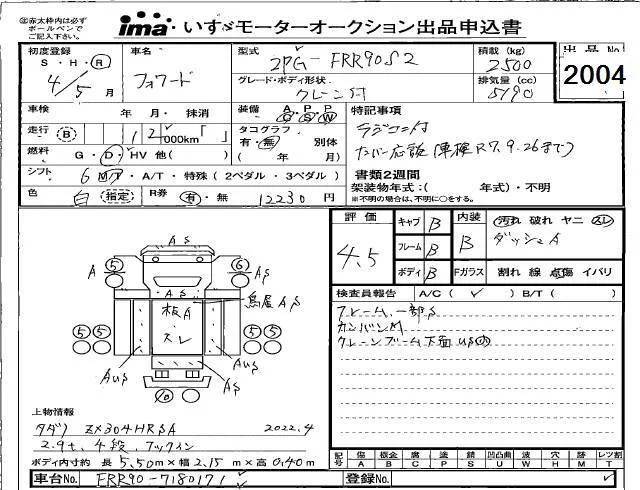 ㊟赤太枠内は必ず
ボールペンで
ご記入下さい。
ima・いすゞモーターオークション出品申込書
初度登録
S・H・Ⓡ
4/5月
車名
フォワード
型式
2PG-FRR90S2
グレード・ボディ形状
クレーン付
積載 (kg)
2500
排気量 (cc)
5190
出品No
2004
車検 年・月・抹消
装備 A P P
G S W
特記事項
走行 (B) 12000km「 」
タコグラフ
有・無 別体
( 年 月)
ラジコン付
燃料 G・D・HV 他( )
シフト 6 M/T・A/T・特殊 (2ペダル・3ペダル)
書類2週間
架装物年式:( 年式)・不明
※不明の場合は、不明に○をする。
色 白 指定
R券 有・無 12230円
評価
4.5
キャブ B
フレーム B
ボディ B
内装
B
Fガラス
汚れ 破れ ヤニ スレ
ダッシュA
割れ 線 点傷 イパリ
検査員報告 A/C(✓) B/T( )
フレーム、一部S
カンバンM
クレーンブーム下面US
AS
A ⑤ ⑥ AS
AS
鳥居AS
板A
スレ
⑤⑤ ⑤⑤
AUS AUS
AS
⑩
AS
上物情報
タダノ ZX304HRSA 2022.4
2.9t、4段、フックイン
ボディ内寸約 長 5.50m×幅 2.15m×高 0.40m
記号 傷 板金 腐 塗 錆 凹凸曲 波 穴 跡 レツ割
A B C P S U W H M T
車台No. FRR90-7180171 ✓
登録No.